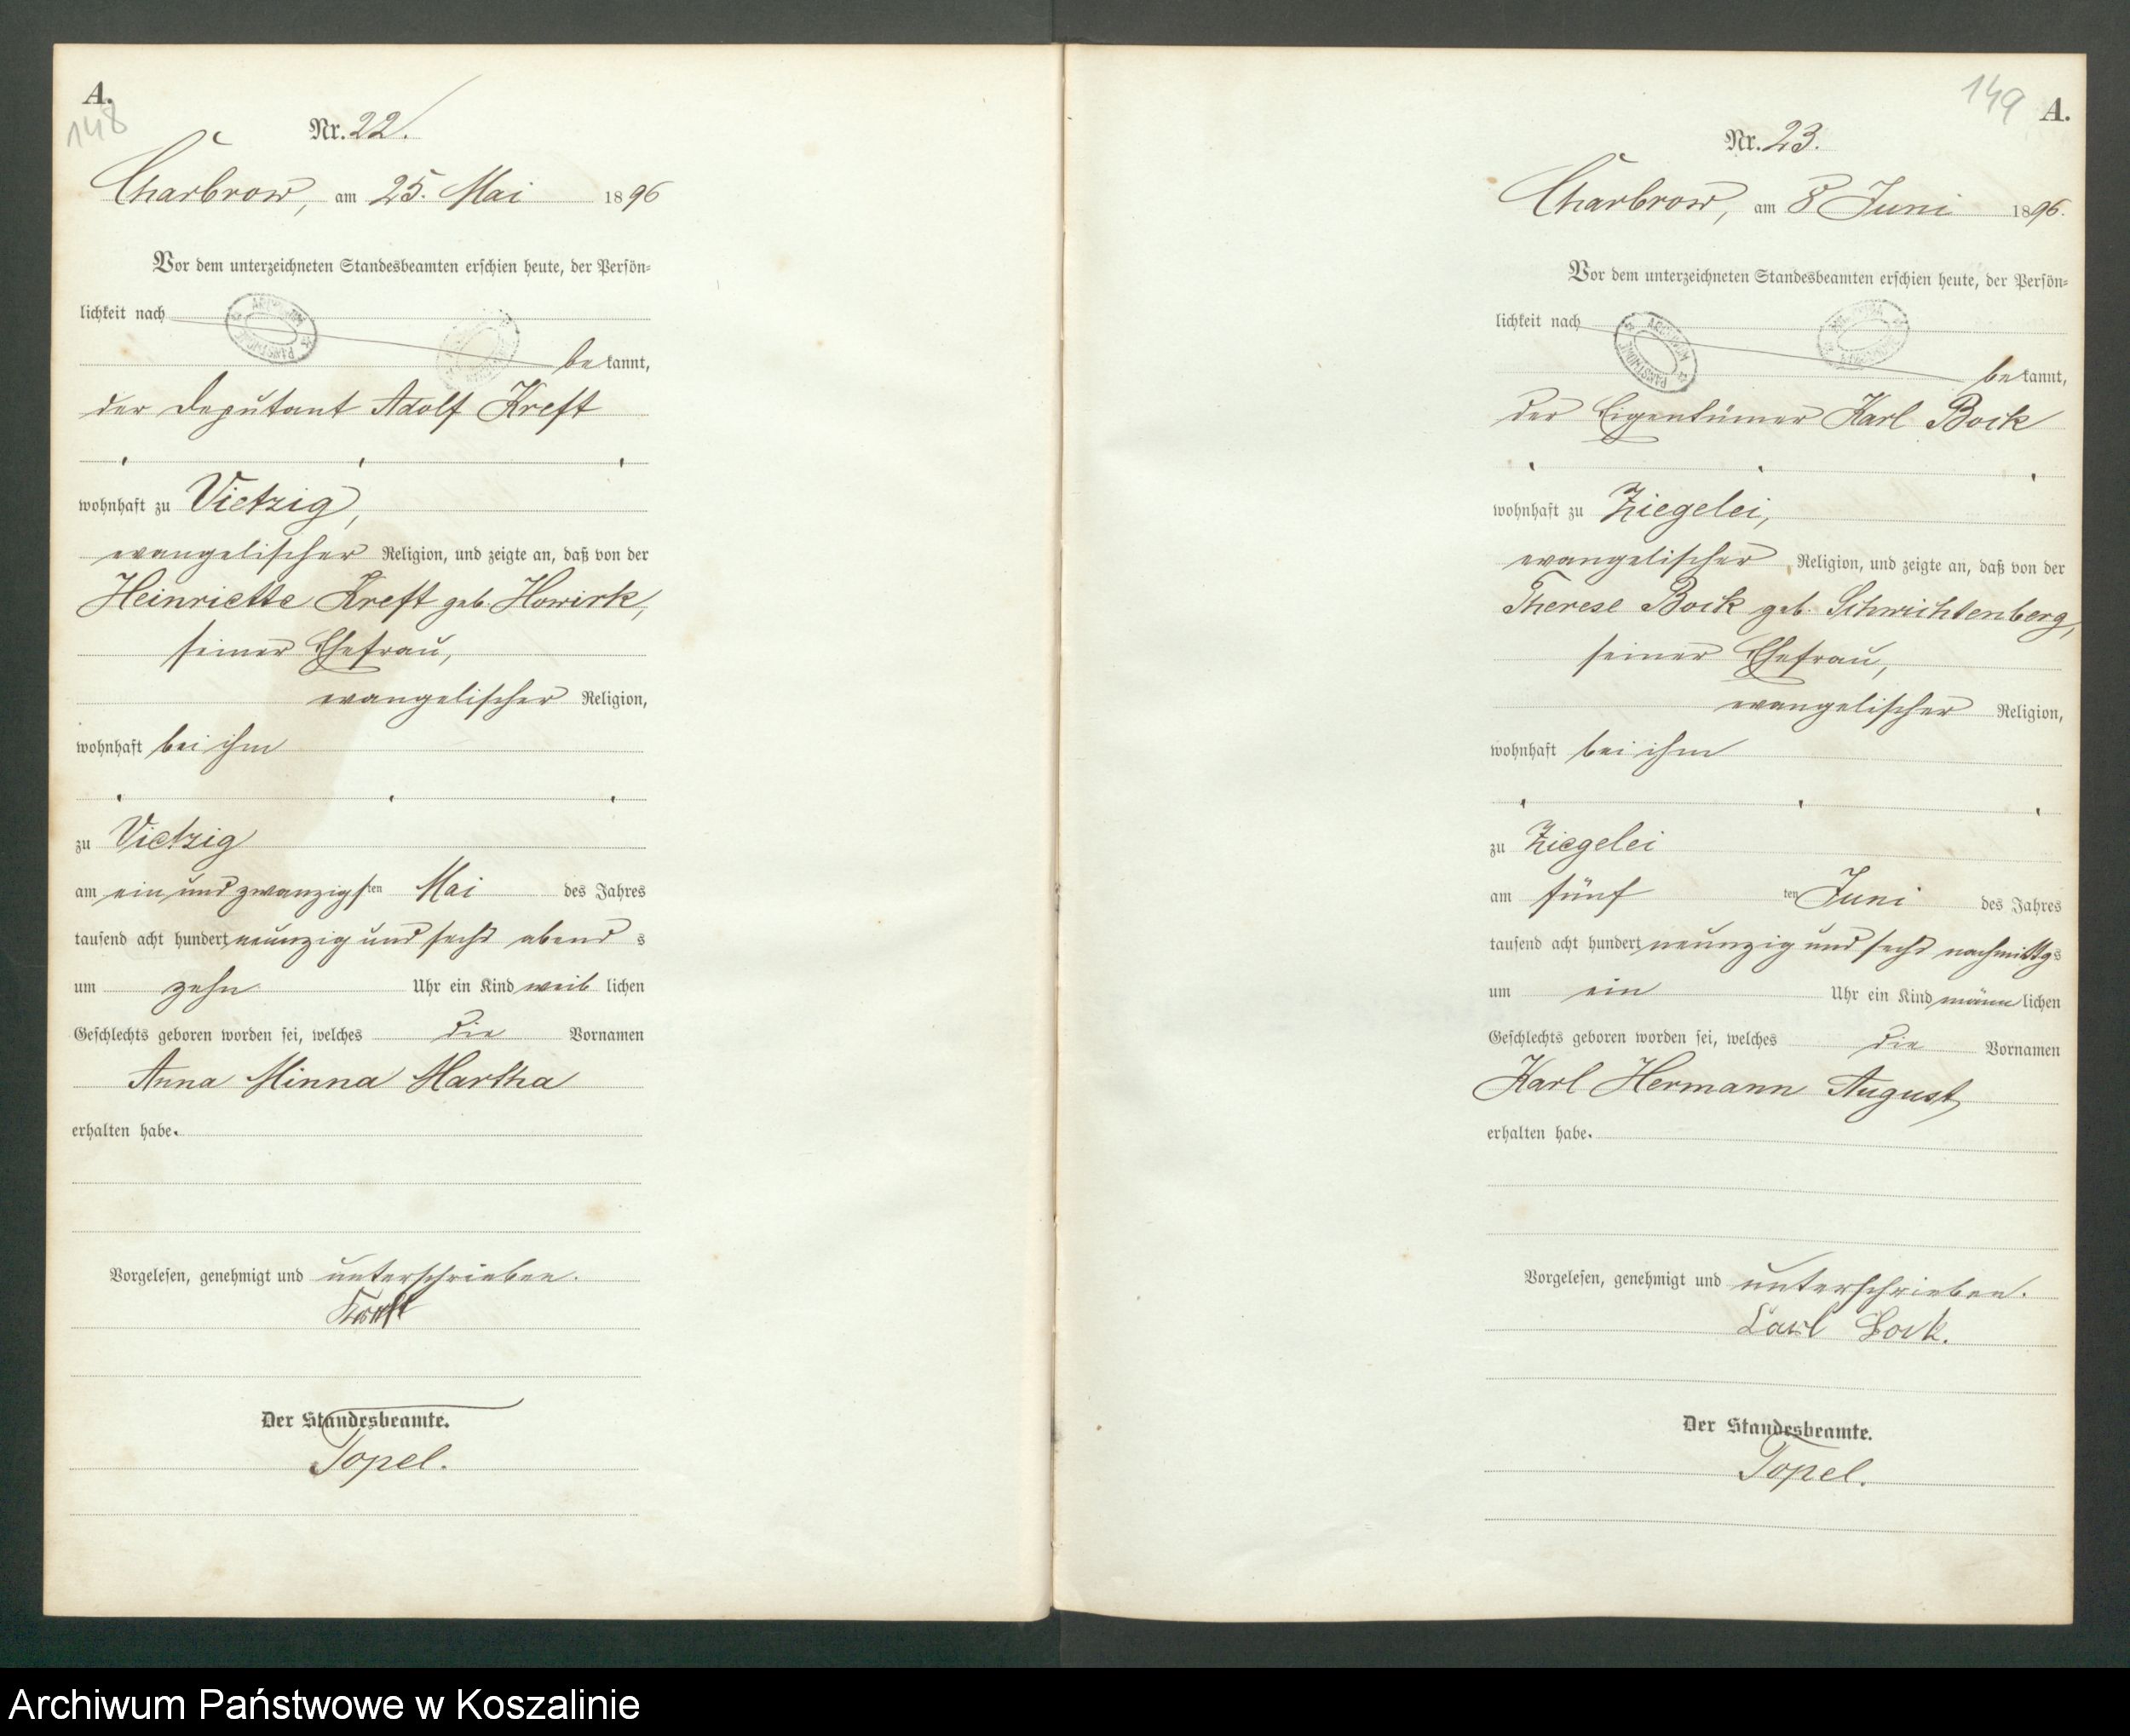 A.
148
Nr. 22.
Charbrow, am 25. Mai 1896
Vor dem unterzeichneten Standesbeamten erschien heute, der Persön-
lichkeit nach
bekannt,
der Deputant Adolf Kreft
wohnhaft zu Vietzig,
evangelischer Religion, und zeigte an, daß von der
Heinriette Kreft geb. Howirk,
seiner Ehefrau,
evangelischer Religion,
wohnhaft bei ihm
zu Vietzig
am ein und zwanzigsten Mai des Jahres
tausend acht hundert neunzig und sechs abends
um zehn Uhr ein Kind weiblichen
Geschlechts geboren worden sei, welches die Vornamen
Anna Minna Martha
erhalten habe.
Vorgelesen, genehmigt und unterschrieben.
Kreft
Der Standesbeamte.
Topel.
149
A.
Nr. 23.
Charbrow, am 8 Juni 1896.
Vor dem unterzeichneten Standesbeamten erschien heute, der Persön-
lichkeit nach
bekannt,
der Eigentümer Karl Bock
wohnhaft zu Ziegelei,
evangelischer Religion, und zeigte an, daß von der
Therese Bock geb. Schwichtenberg,
seiner Ehefrau,
evangelischer Religion,
wohnhaft bei ihm
zu Ziegelei
am fünften Juni des Jahres
tausend acht hundert neunzig und sechs nachmittgs
um ein Uhr ein Kind männlichen
Geschlechts geboren worden sei, welches die Vornamen
Karl Hermann August
erhalten habe.
Vorgelesen, genehmigt und unterschrieben.
Carl Bock.
Der Standesbeamte.
Topel.
Archiwum Państwowe w Koszalinie